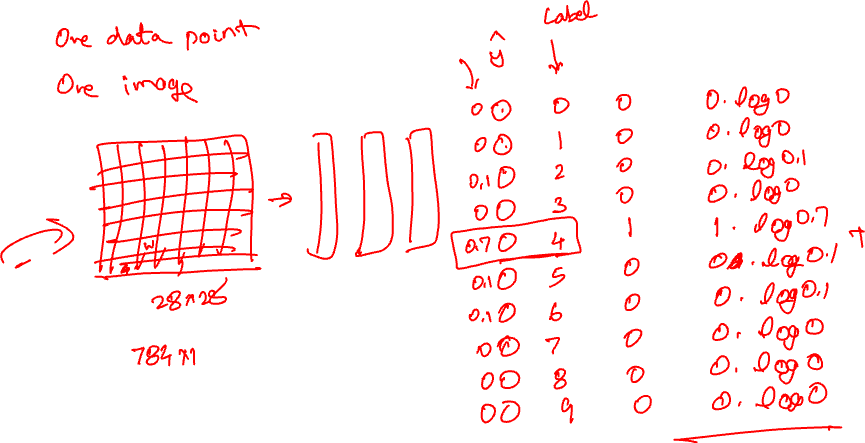 One data point
One image
28×28
784×1
ŷ Label
0 0 0 0 0. log 0
0 0 1 0 0. log 0
0.1 0 2 0 0. log 0.1
0 0 3 0 0. log 0
0.7 0 4 1 1. log 0.7 +
0.1 0 5 0 0. log 0.1
0.1 0 6 0 0. log 0.1
0 0 7 0 0. log 0
0 0 8 0 0. log 0
0 0 9 0 0. log 0